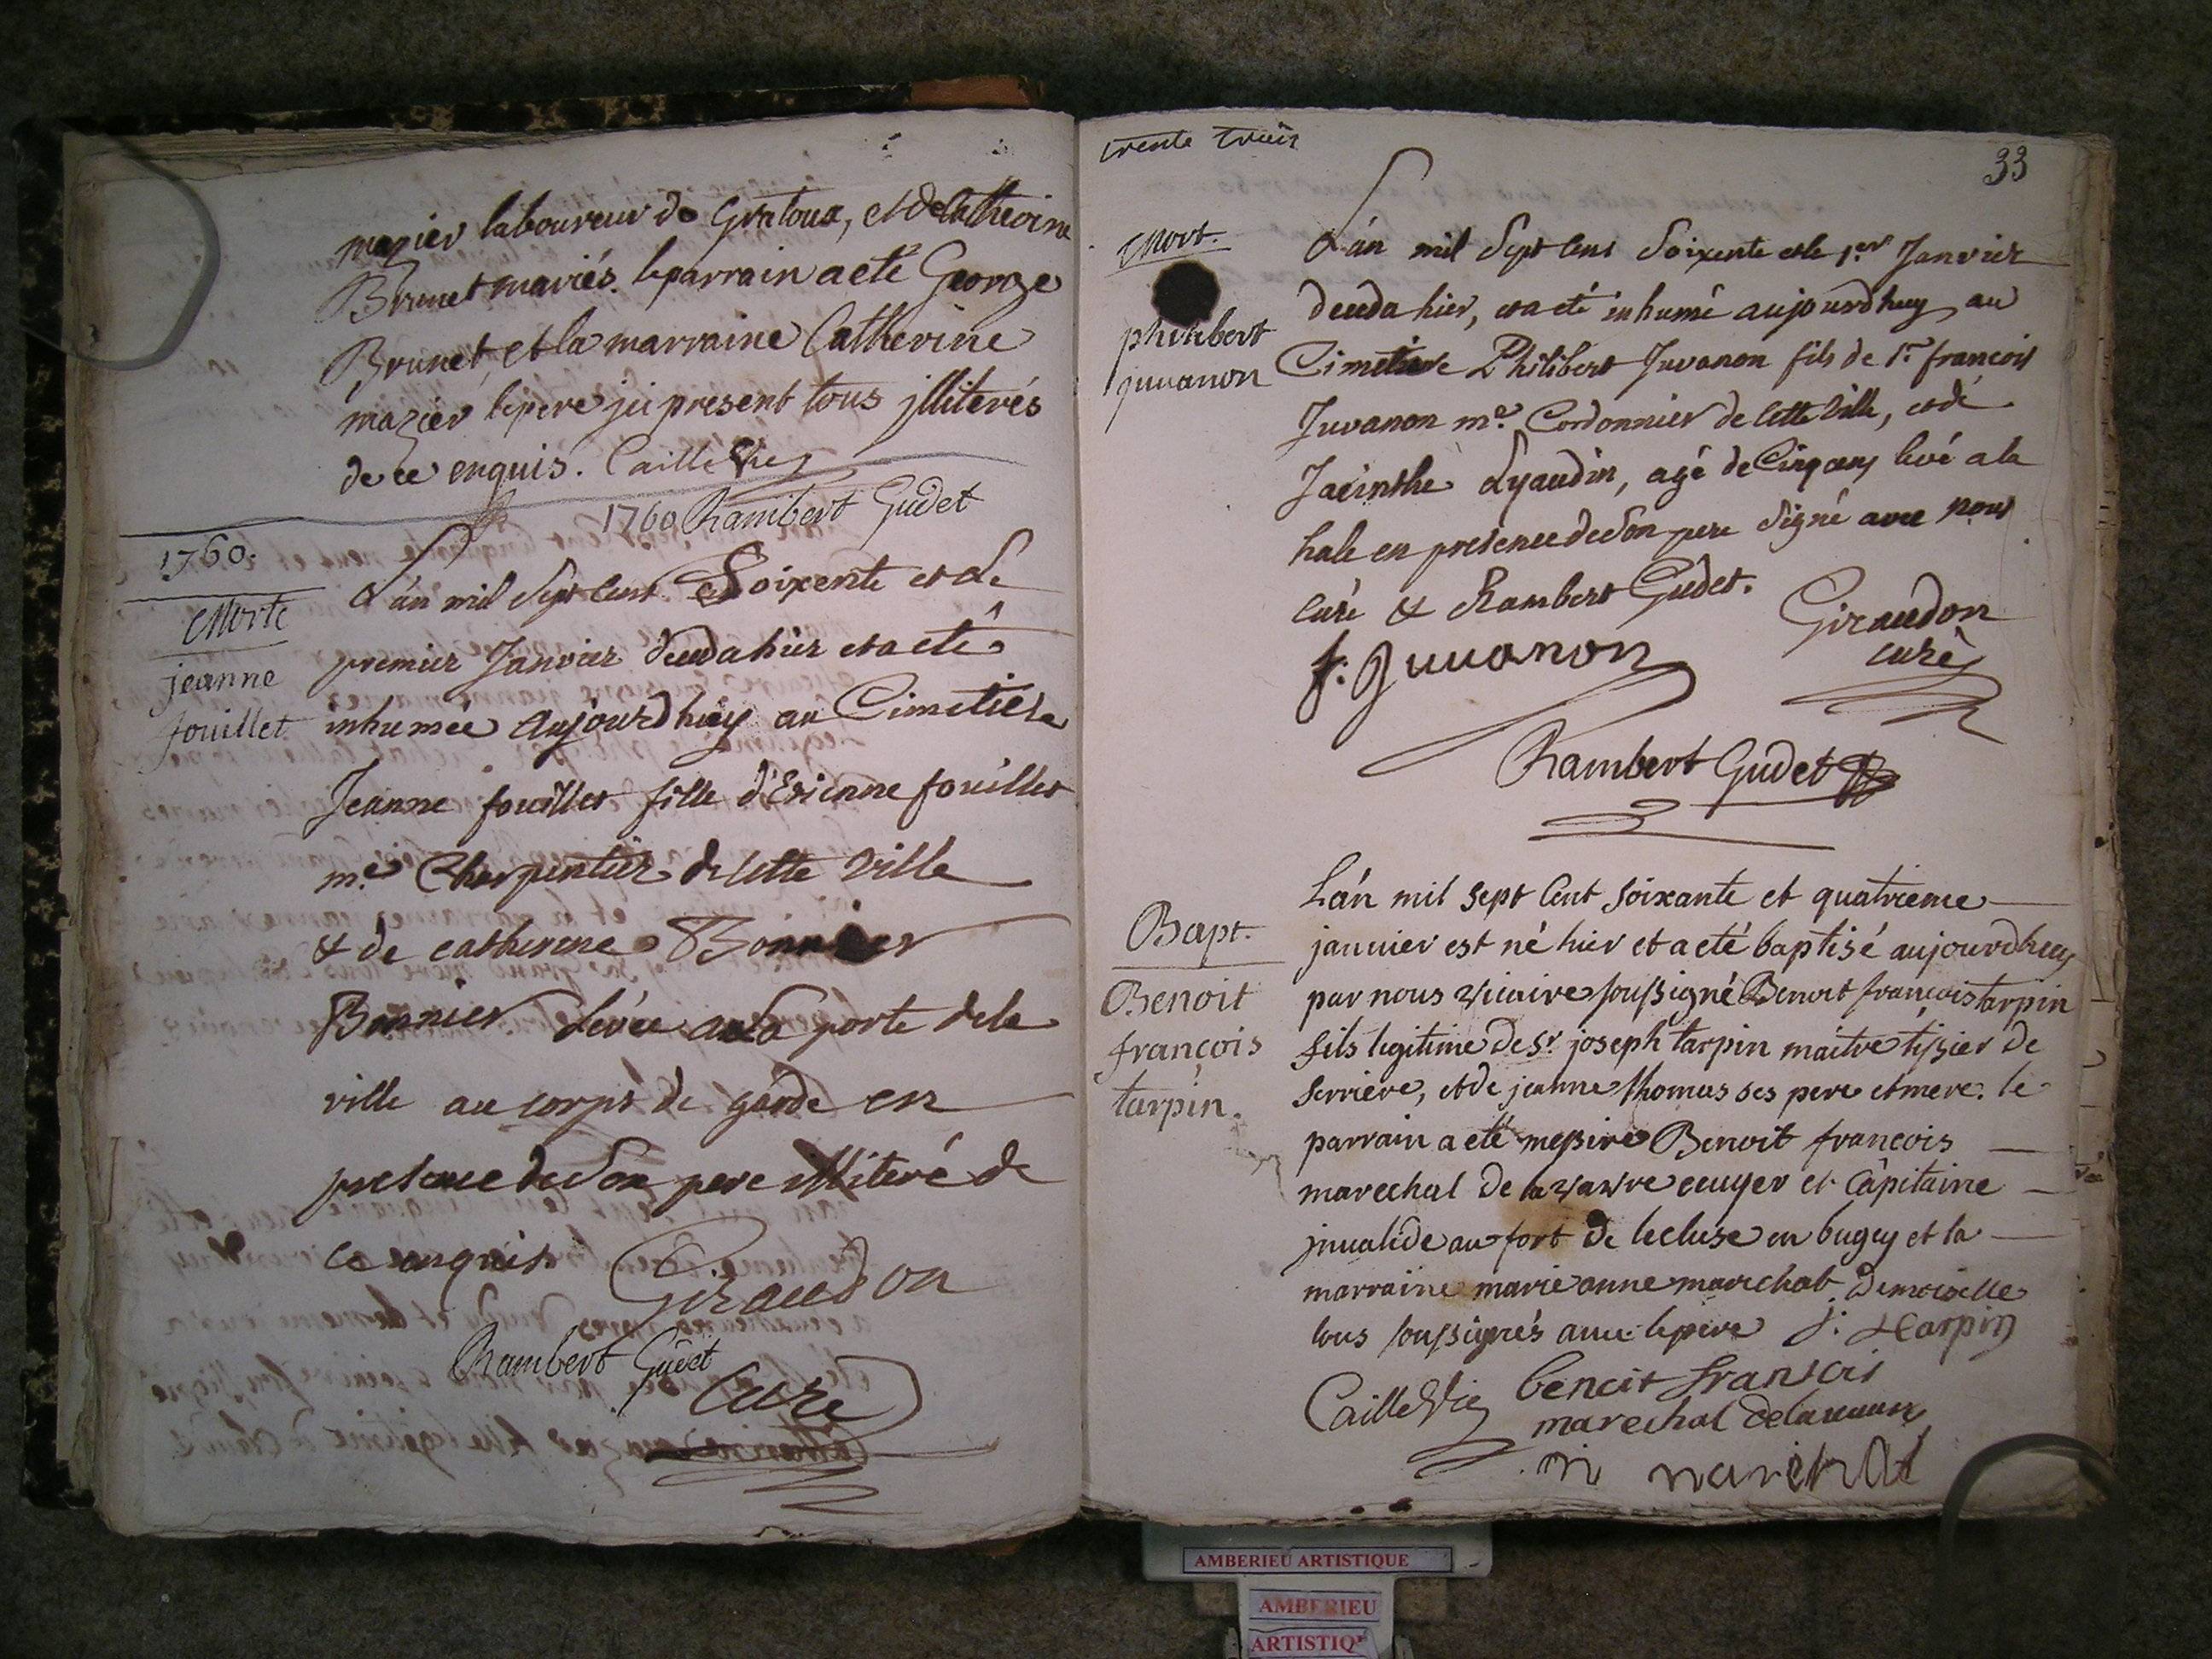 mazier laboureur de Gratoux, et de Catherine
Brunet mariés. le parrain a eté George
Brunet, et la marraine Catherine
mazier le pere ici present tous jlliterés
de ce enquis. Caille Vic
1760 Rambert Gudet
1760.
Morte
jeanne
fouillet
L'án mil Sept Cent Soixente et Le
premier Janvier deceda hier et a eté
inhumée aujourd'huy au Cimetiere
Jeanne fouillet fille d'Etienne fouillet
me. Charpentier de Cette Ville
& de catherine Bonnier
Bonnier levée a la porte de la
ville au corps de garde en
presence de Son pere illiteré de
ce enquis Giraudon
Rambert Gudet
Curé
trente trois
33
Mort.
philibert
juvanon
L'án mil Sept Cent Soixente et le 1er Janvier
deceda hier, et a eté inhumé aujourdhuy au
Cimetiere Philibert Juvanon fils de Sr. françois
Juvanon me. Cordonnier de Cette Ville, et de
Jacinthe Lyaudin, agé de Cinq ans levé a la
hale en presence de Son pere Signé avec nous
Curé & Rambert Gudet.
Giraudon
curé
f. Juvanon
Rambert Gudet
L'án mil sept Cent soixante et quatrieme
janvier est né hier et a eté baptisé aujourdhuy
Bapt.
Benoit
françois
tarpin.
par nous vicaire soussigné Benoit françois tarpin
fils legitime de Sr. joseph tarpin maitre tissier de
serriere, et de jeanne thomas ses pere et mere. le
parrain a eté messire Benoit françois
marechal de la vavre ecuyer et Capitaine
jnvalide au fort de lecluse en bugey et la
marraine marie anne marechal demoiselle
tous soussignés avec le pere J. tarpin
Caille Vic benoit fransois
marechal delavavre
m marechal
AMBERIEU ARTISTIQUE
AMBERIEU
ARTISTIQ